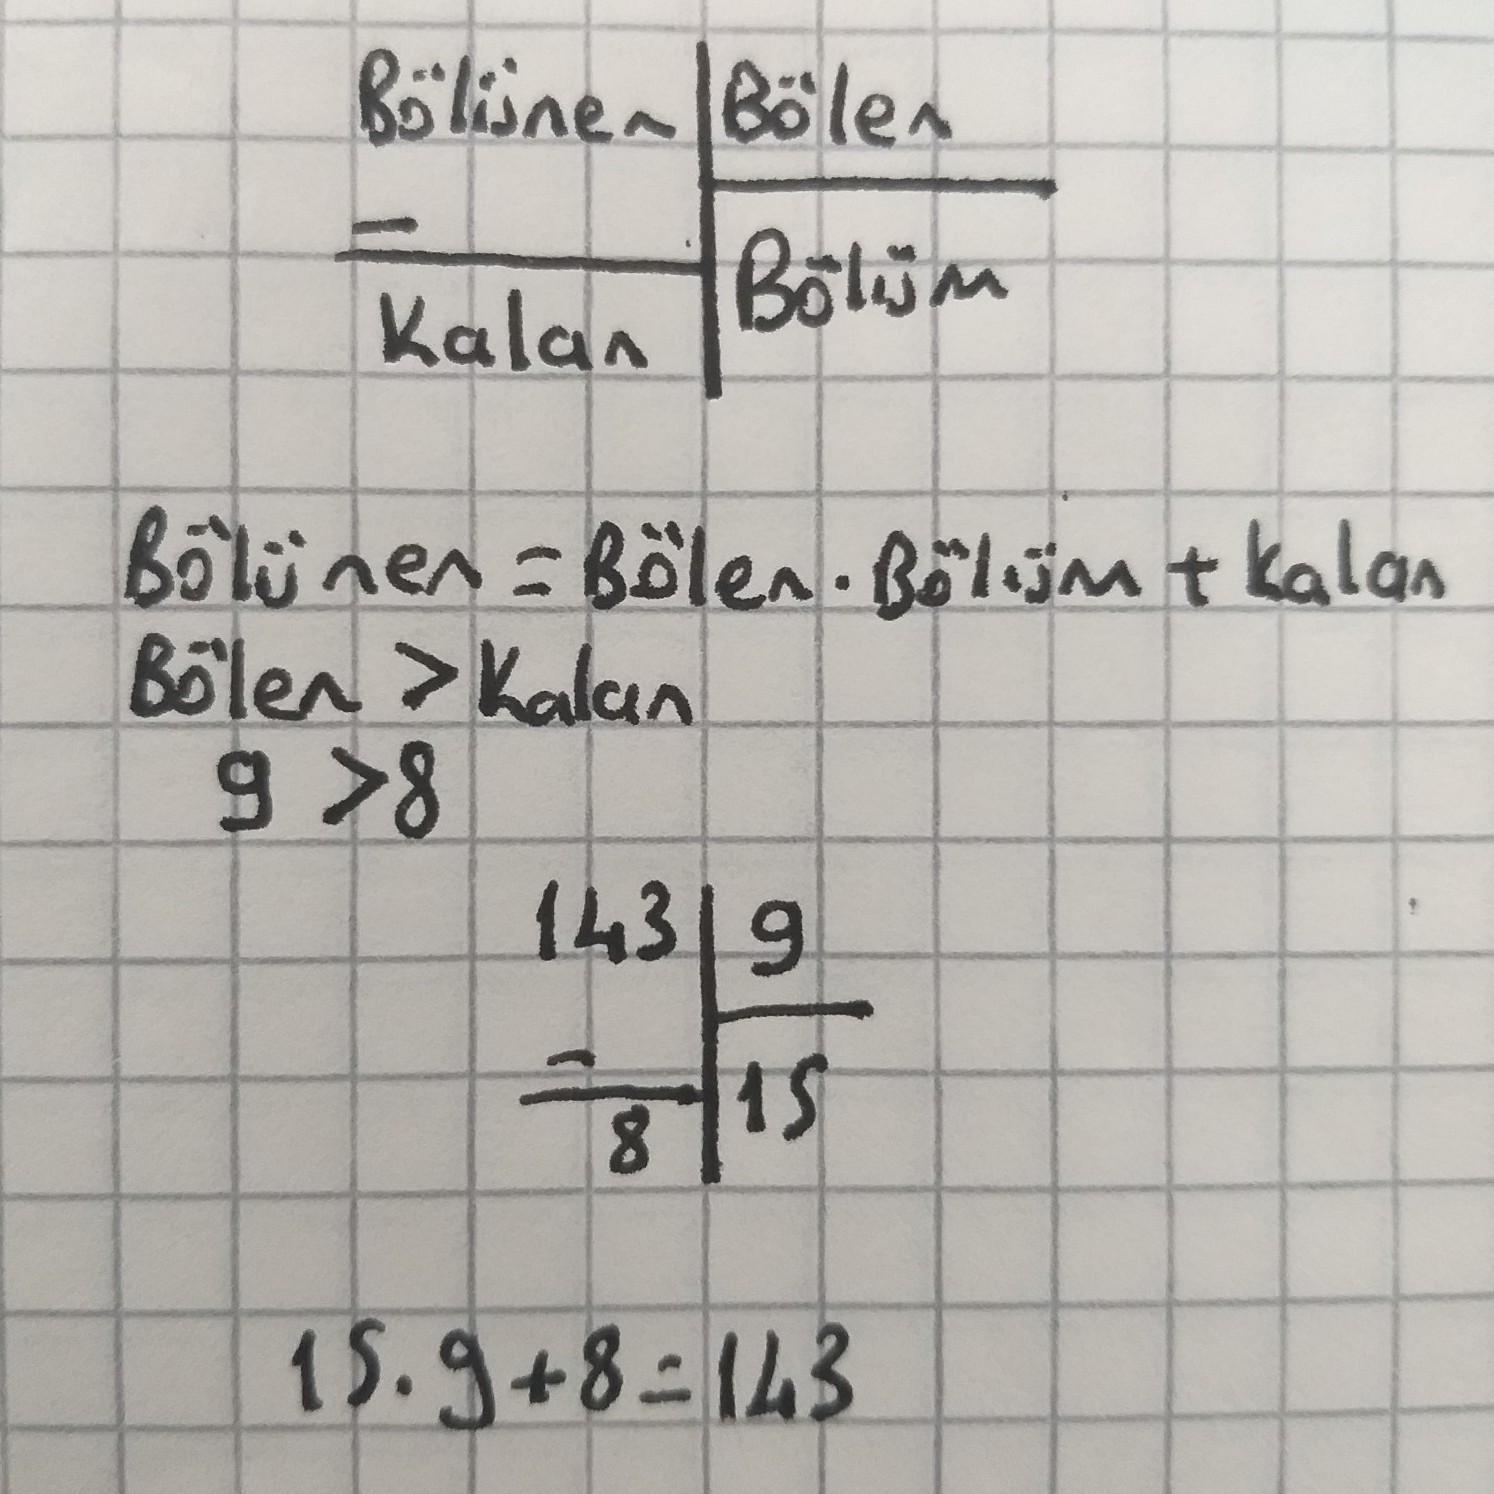 Bölünen Bölen
-
Kalan Bölüm
Bölünen = Bölen . Bölüm + Kalan
Bölen > Kalan
9 > 8
143 9
-
8 15
15 . 9 + 8 = 143